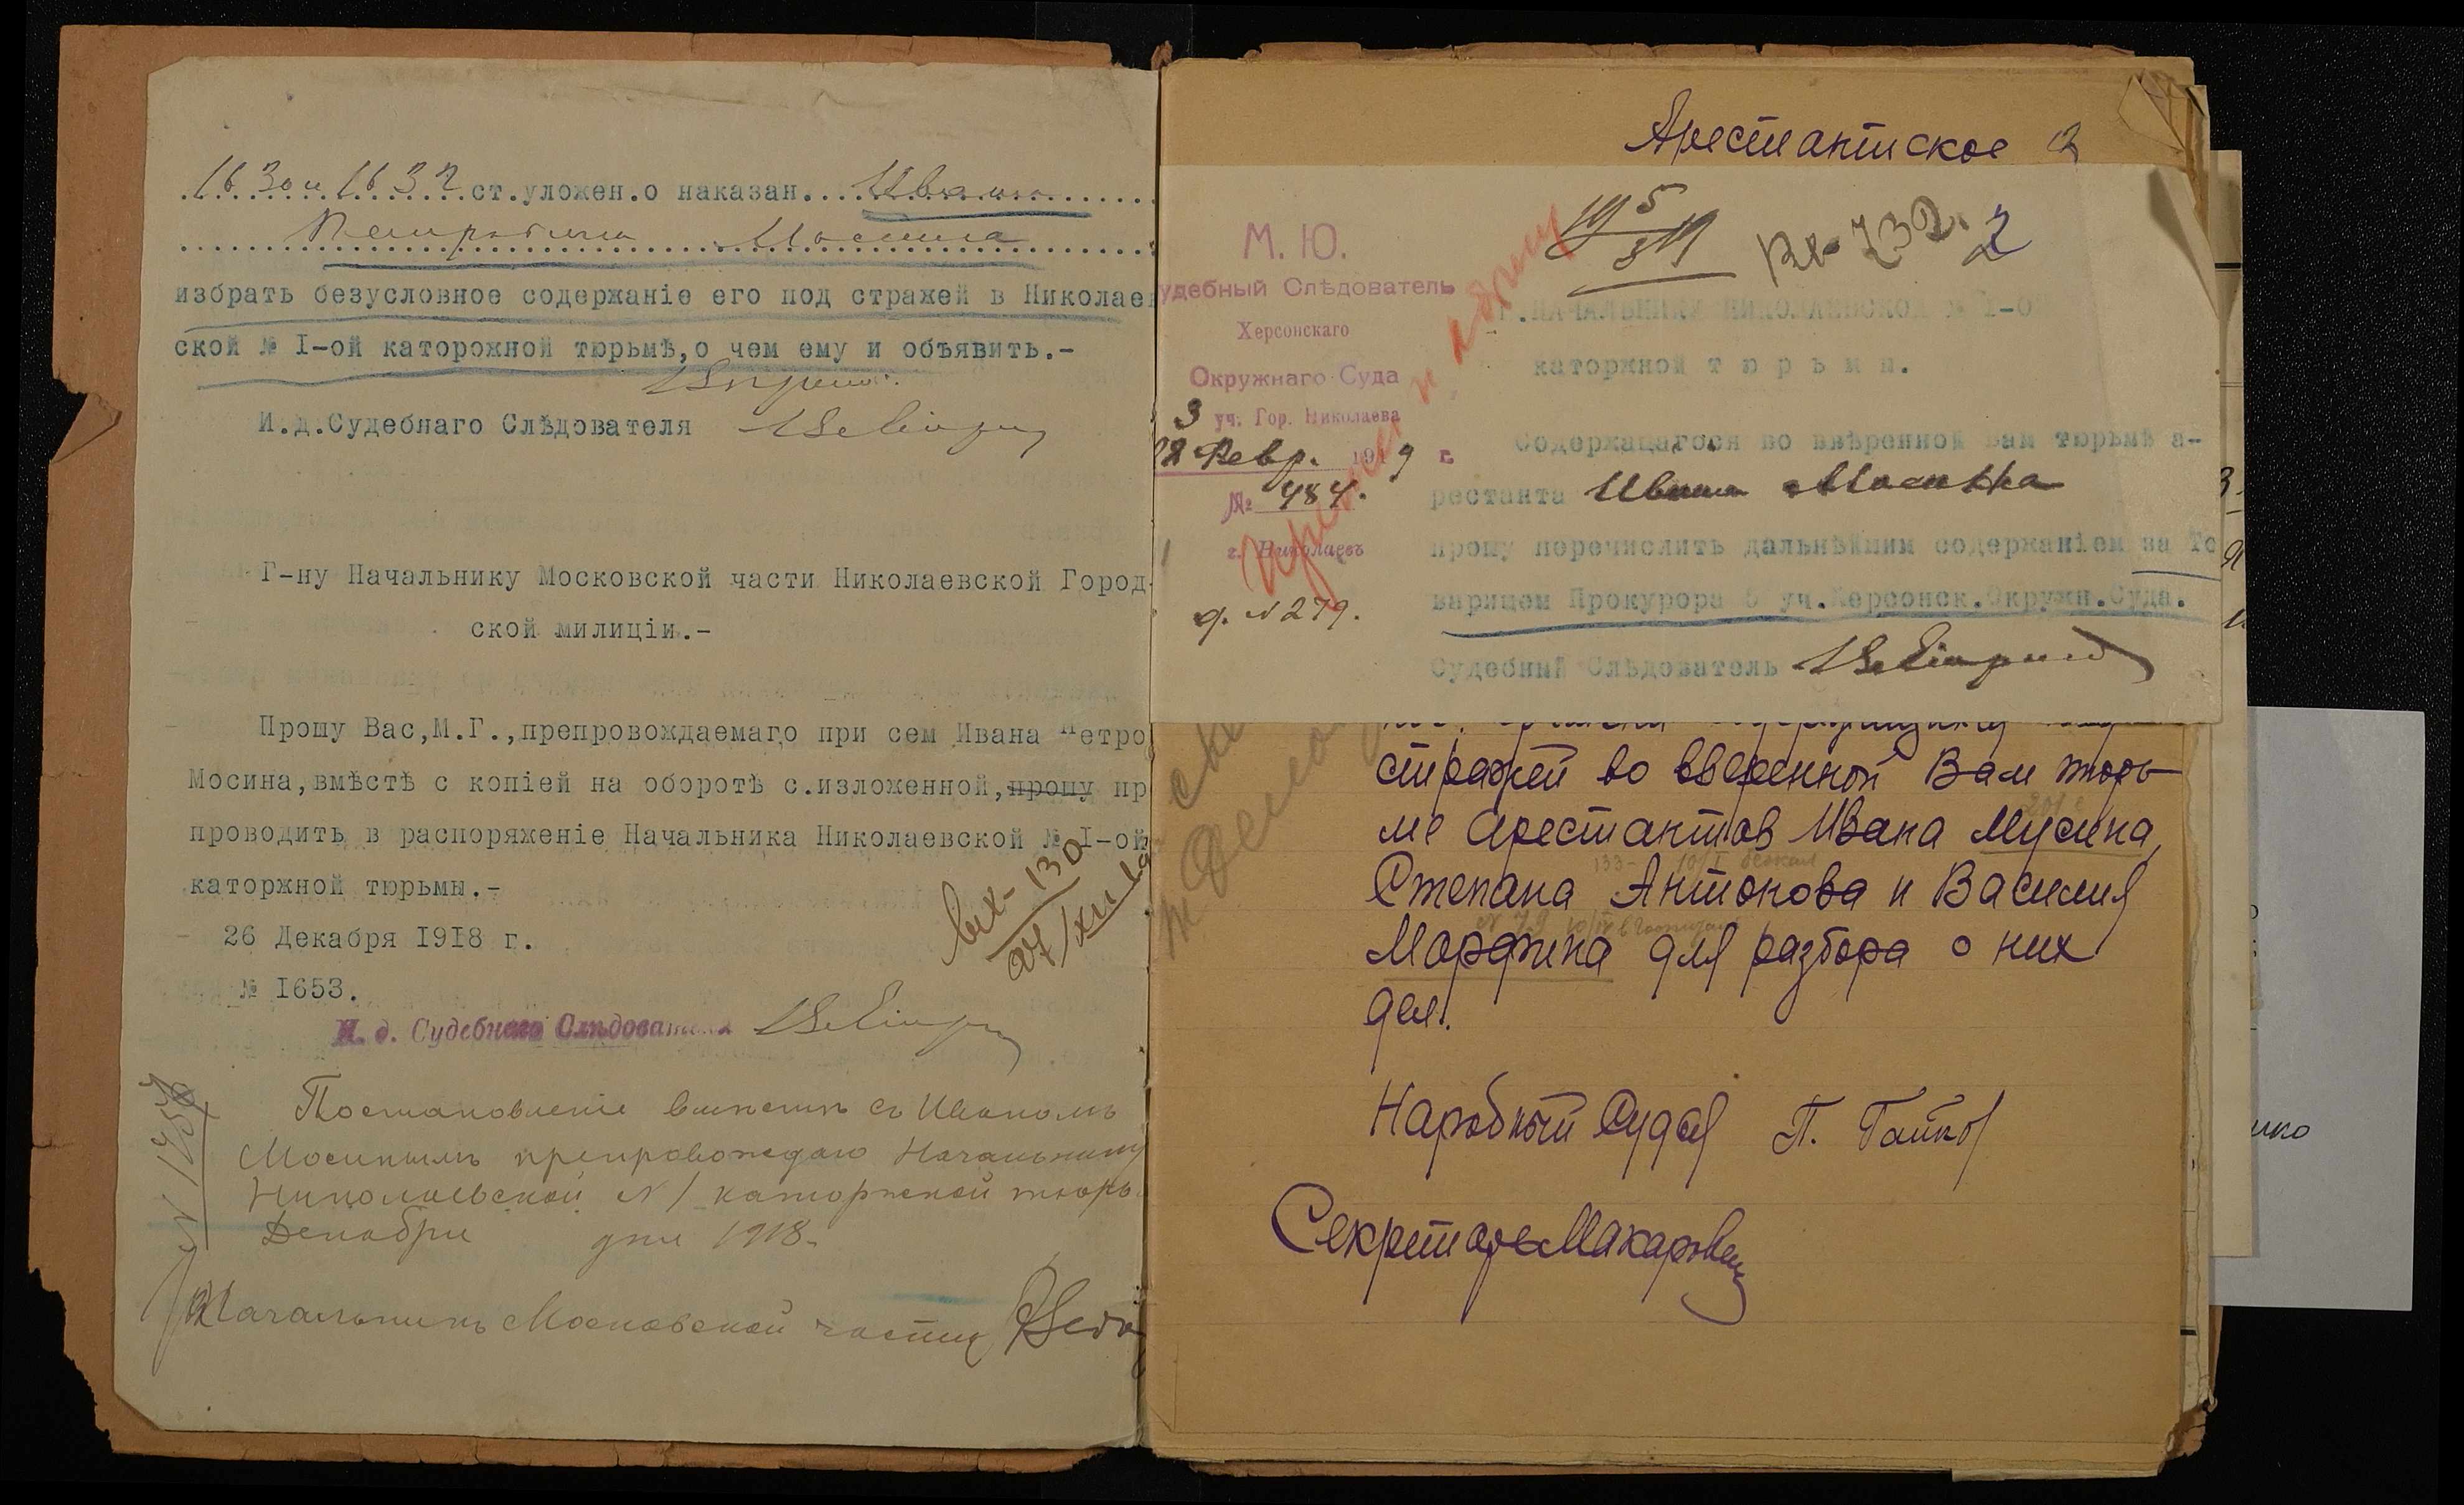 1630 и 1632 ст.уложен.о наказан. Ивана
Петровича Мосина
избрать безусловное содержаніе его под стражей в Николаев
ской № I-ой каторожной тюрьмѣ,о чем ему и объявить.-
И.д.Судебнаго Слѣдователя
Г-ну Начальнику Московской части Николаевской Город-
ской милиціи.-
Прошу Вас,М.Г.,препровождаемаго при сем Ивана Петро
Мосина,вмѣстѣ с копіей на оборотѣ с.изложенной,прошу пр
проводить в распоряженіе Начальника Николаевской № I-ой
каторжной тюрьмы.-
26 Декабря I9I8 г.
№ I653.
вх-130
27/XII
И. д. Судебнаго Слѣдователя
Постановленіе вмѣстѣ съ Иваномъ
Мосинымъ препровождаю Начальнику
Николаевской N 1 каторжной тюрь
Декабря дня 1918
Начальникъ Московской части
Арестантское
2
Вх-732.
М. Ю.
удебный Слѣдователь
Херсонскаго
Окружнаго Суда
3 уч. Гор. Николаева
Февр. 1919 г.
№ 484.
г. Николаевъ
д. N 279.
Г.НАЧАЛЬНИКУ НИКОЛАЕВСКОЙ № I-О
каторжной т ю р ь м ы.
Содержащагося во ввѣренной Вам тюрьмѣ а-
рестанта Ивана Мосина
прошу перечислить дальнѣйшим содержаніем за То
варищем Прокурора 5 уч.Херсонск.Окружн.Суда.
Судебный Слѣдователь
стражей во вверенной Вам тюрь-
ме арестантов Ивана Мусина,
Степана Антонова и Василия
Марфина для разбора о них
дел.
Народный Судья П.
Секретарь Макарович